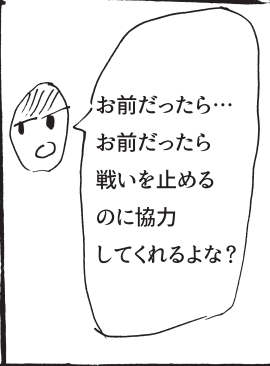 お前だったら…
お前だったら
戦いを止める
のに協力
してくれるよな?